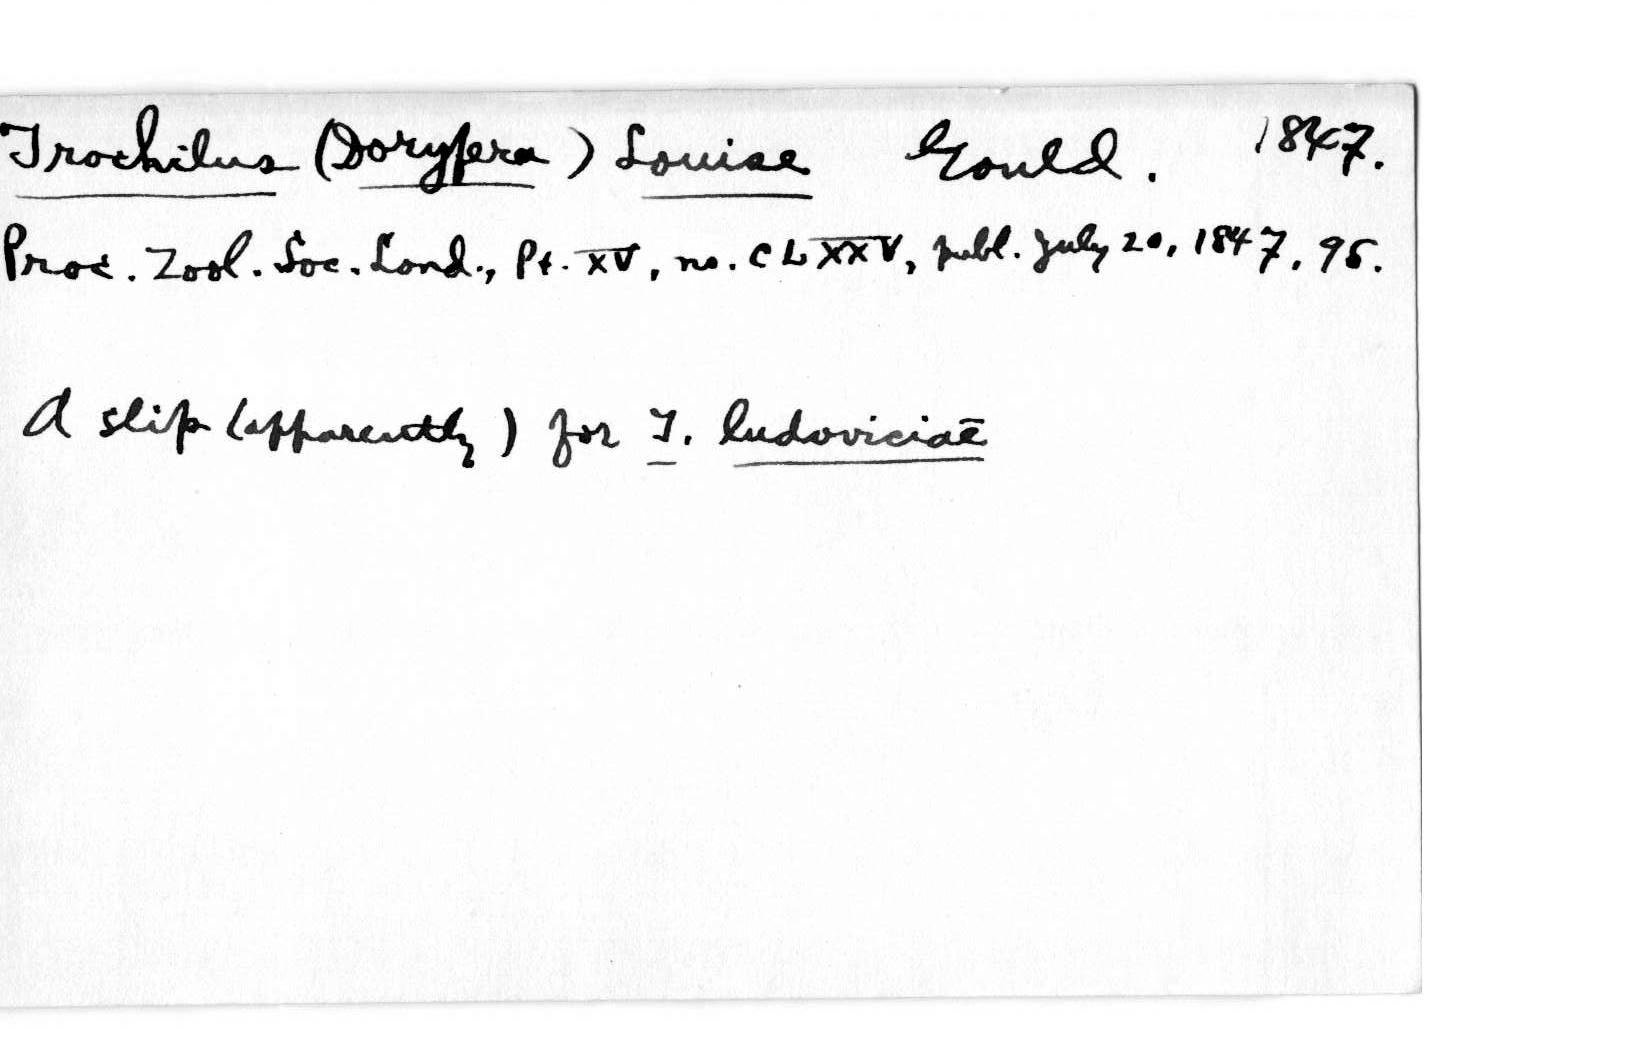 Trochilus (Doryfera) Louise Gould. 1847.
Proc. Zool. Soc. Lond., Pt. XV, no. CLXXV, publ. July 20, 1847, 95.
A slip (apparently) for T. ludoviciae